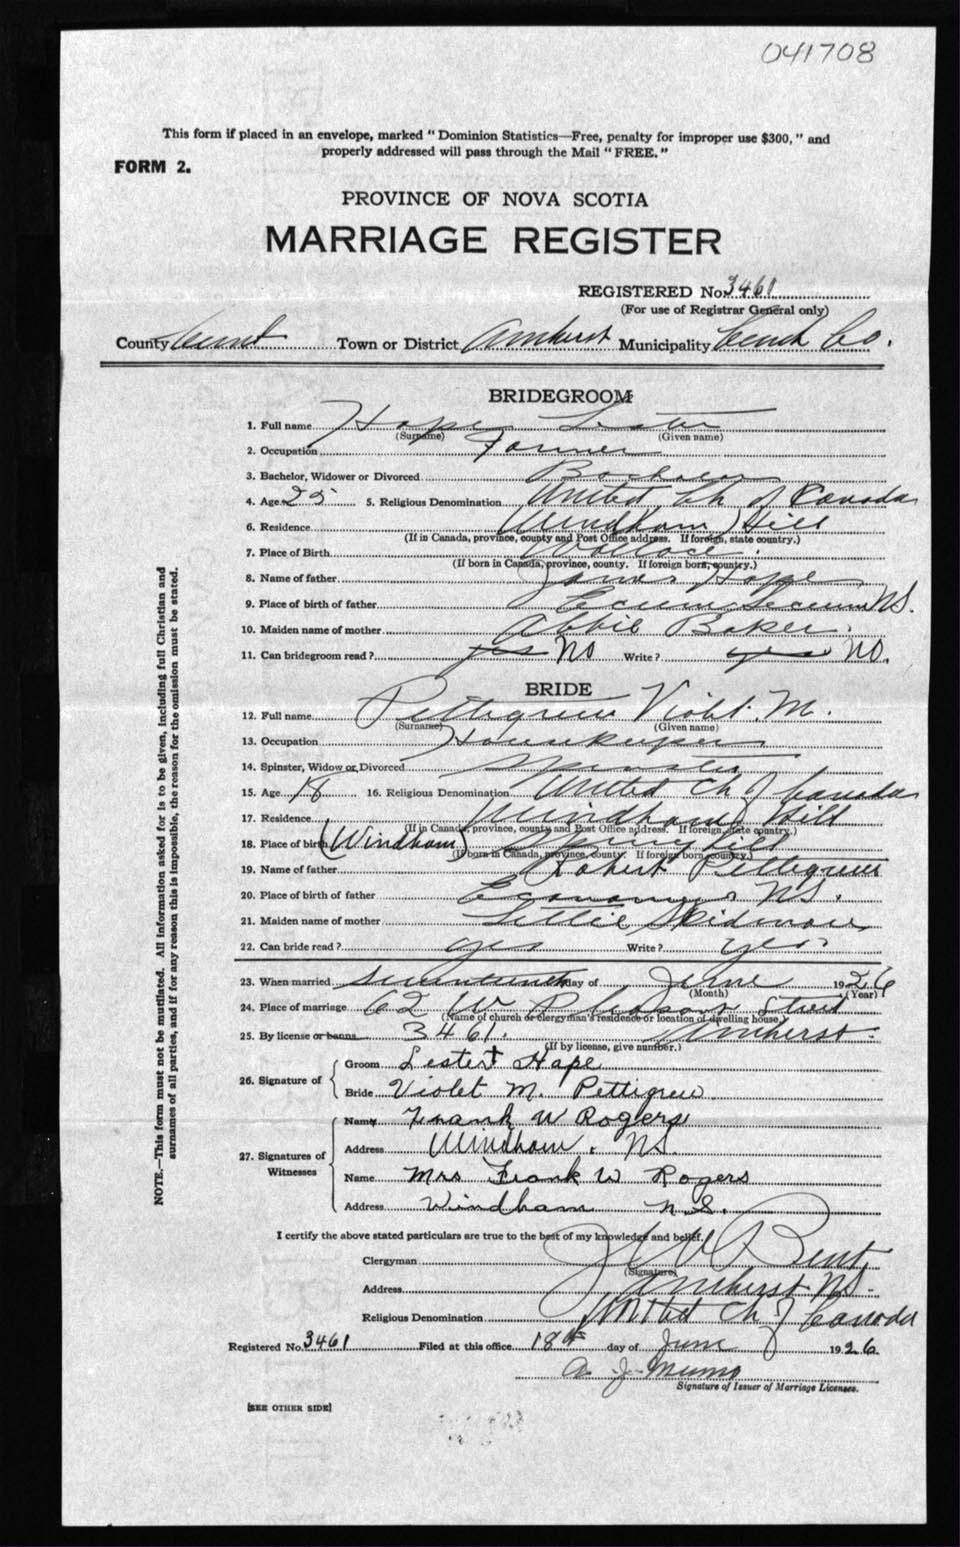 041708
This form if placed in an envelope, marked "Dominion Statistics—Free, penalty for improper use $300," and
properly addressed will pass through the Mail "FREE."
FORM 2.
PROVINCE OF NOVA SCOTIA
MARRIAGE REGISTER
REGISTERED No. 3461
(For use of Registrar General only)
County Cumb Town or District Amherst Municipality Cumb Co.
BRIDEGROOM
1. Full name Hope Lester
(Surname) (Given name)
2. Occupation Farmer
3. Bachelor, Widower or Divorced Bachelor
4. Age 25 5. Religious Denomination United Ch of Canada
6. Residence Windham Hill
(If in Canada, province, county and Post Office address. If foreign, state country.)
7. Place of Birth Wallace
(If born in Canada, province, county. If foreign born, country.)
8. Name of father James Hope
9. Place of birth of father Ecum Secum NS.
10. Maiden name of mother Abbie Baker
11. Can bridegroom read? yes No Write? yes NO.
BRIDE
12. Full name Pettegrew Violet. M.
(Surname) (Given name)
13. Occupation Housekeeper
14. Spinster, Widow or Divorced Spinster
15. Age 18 16. Religious Denomination United Ch of Canada
17. Residence Windham Hill
(If in Canada, province, county and Post Office address. If foreign, state country.)
18. Place of birth (Windham) Springhill
(If born in Canada, province, county. If foreign born, country.)
19. Name of father Robert Pettegrew
20. Place of birth of father Economy NS.
21. Maiden name of mother Lillie Skidmore
22. Can bride read? yes Write? yes
23. When married seventeenth day of June 1926
(Month) (Year)
24. Place of marriage 62 W Pleasant Street
(Name of church or clergyman's residence or location of dwelling house.)
25. By license or banns 3461. Amherst
(If by license, give number.)
26. Signature of
Groom Lester Hope
Bride Violet M. Pettigrew
27. Signatures of Witnesses
Name Frank W Rogers
Address Windham. NS.
Name Mrs Frank W Rogers
Address Windham N.S.
I certify the above stated particulars are true to the best of my knowledge and belief.
Clergyman Bent
(Signature)
Address Amherst NS.
Religious Denomination United Ch of Canada
Registered No. 3461 Filed at this office 18th day of June 1926
A. J.
Signature of Issuer of Marriage Licenses.
[SEE OTHER SIDE]
NOTE.—This form must not be mutilated. All information asked for is to be given, including full Christian and
surnames of all parties, and if for any reason this is impossible, the reason for the omission must be stated.